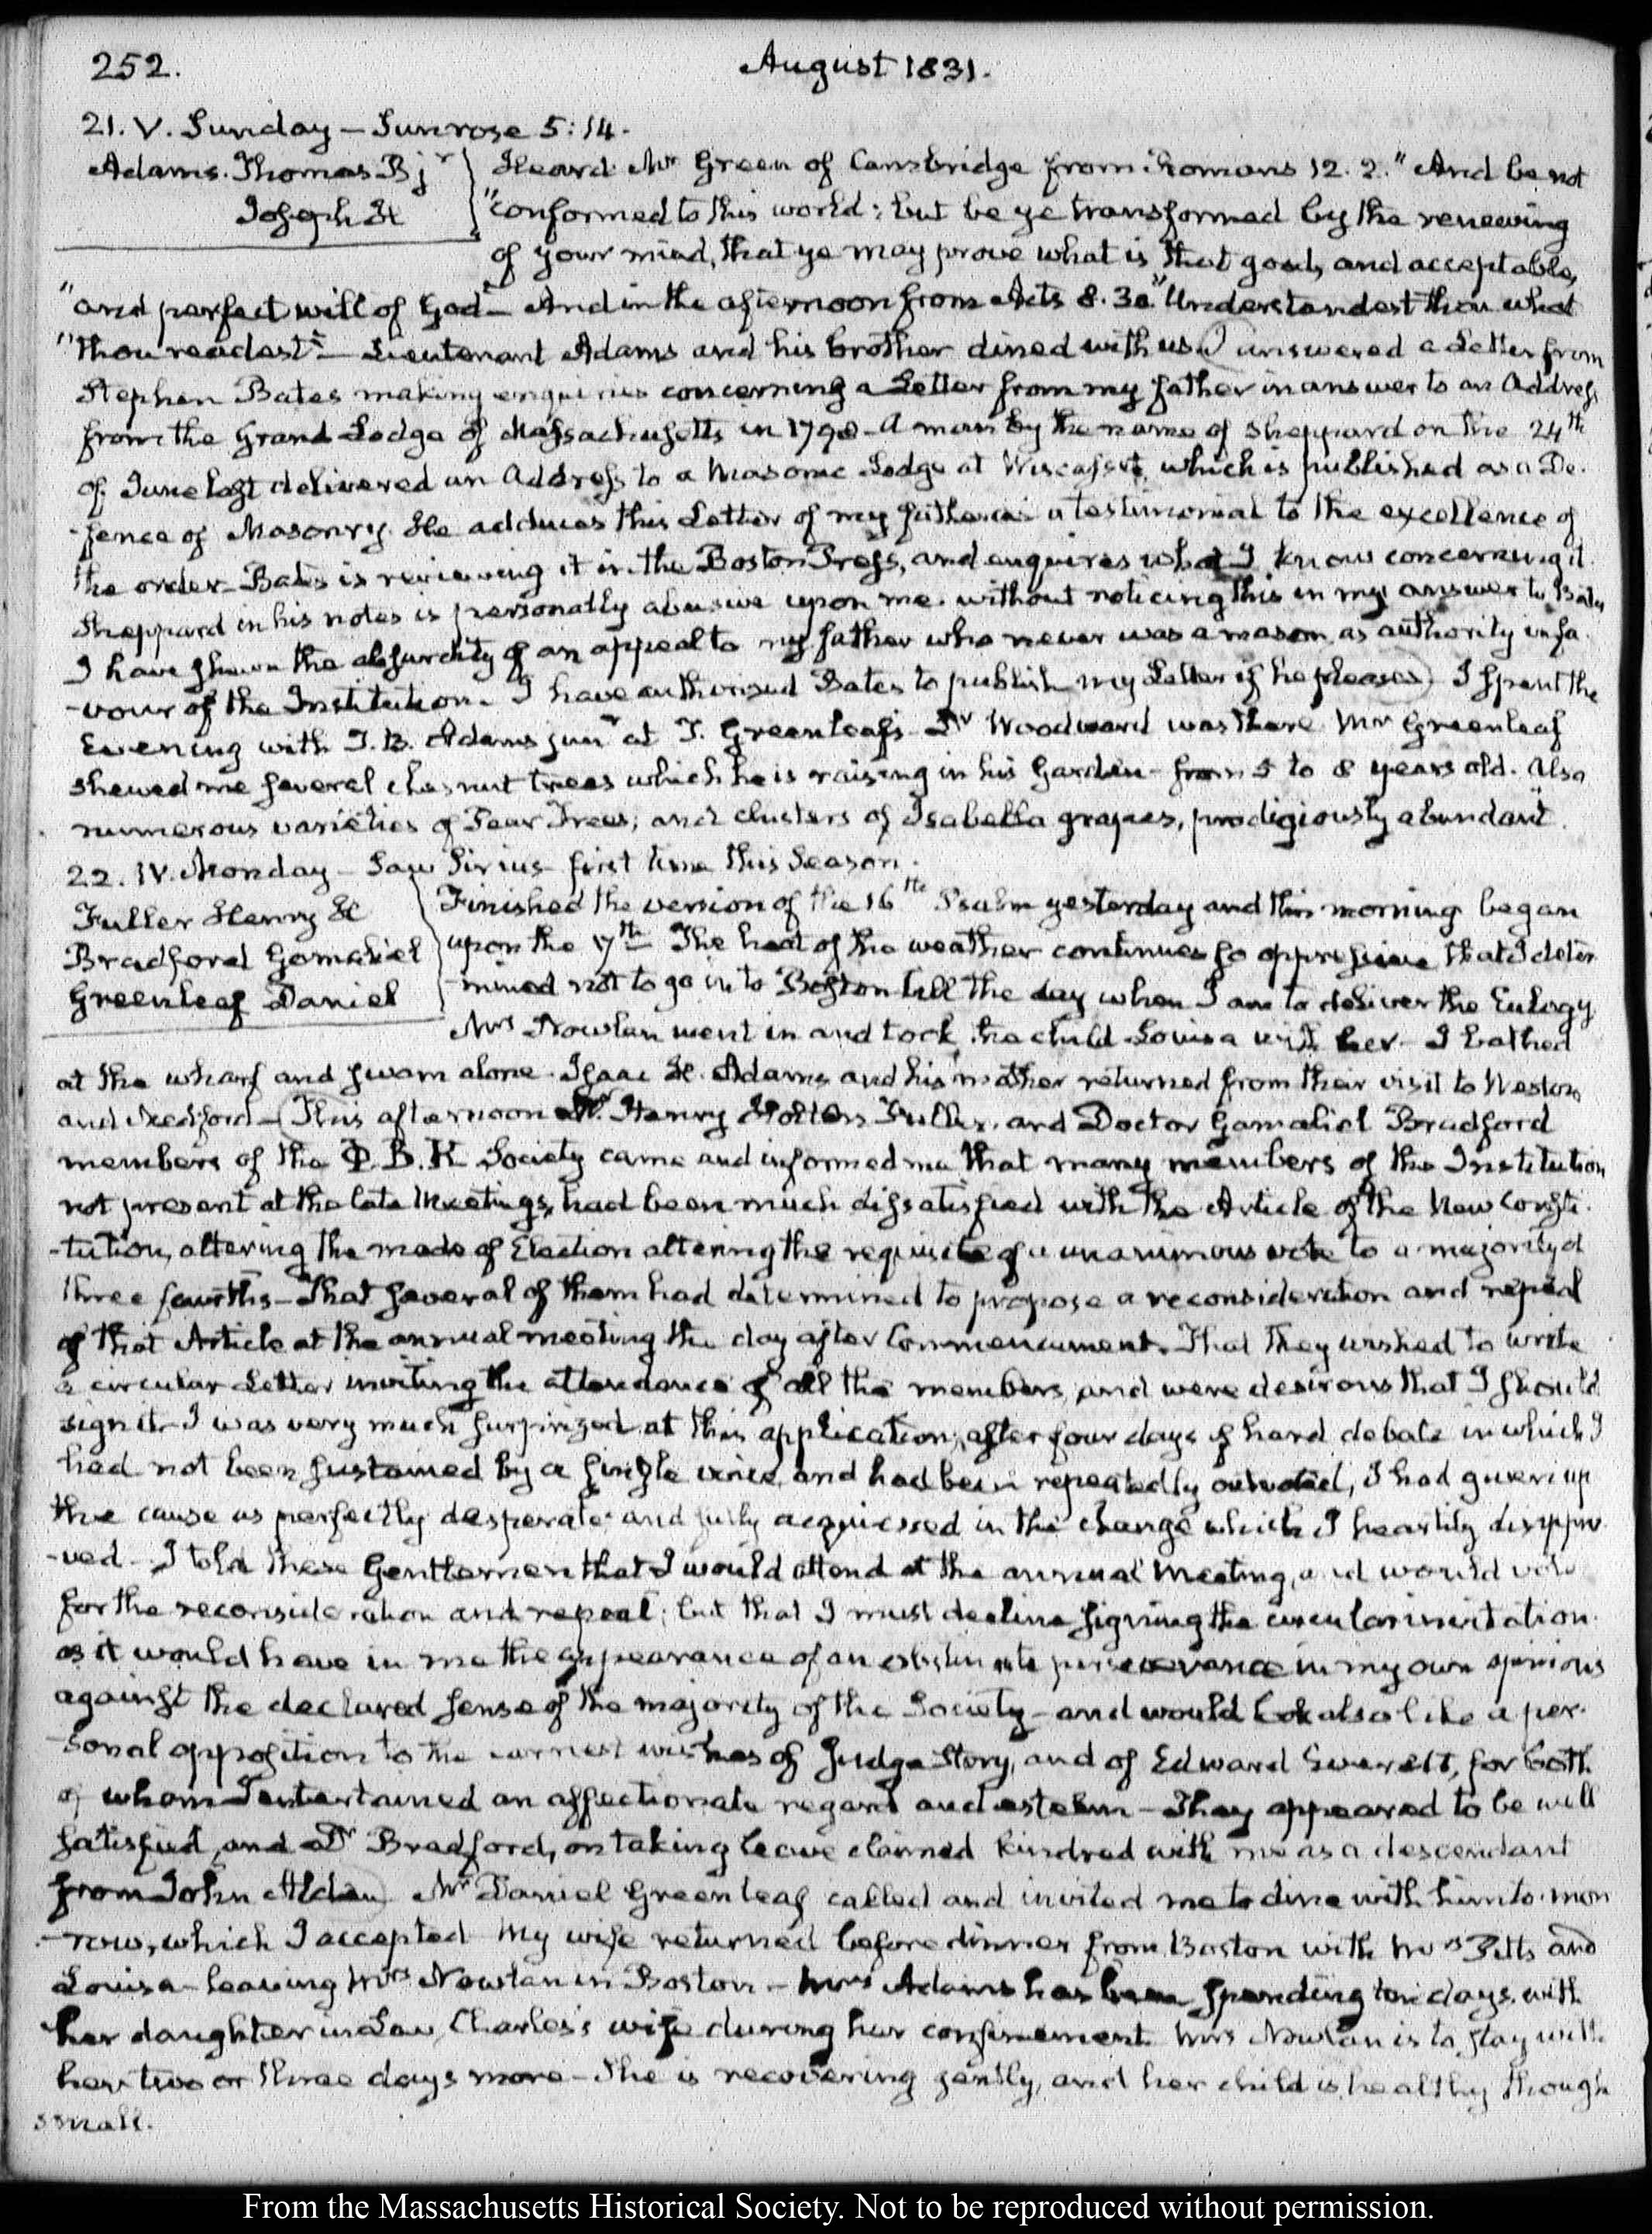 252.
August 1831.
21. V. Sunday – Sunrose 5:14.
Adams. Thomas B jr
Joseph H
Heard Mr Green of Cambridge from Romans 12. 2. "And be not
"conformed to this world: but be ye transformed by the renewing
of your mind, that ye may prove what is that good, and acceptable,
"and perfect will of God" – And in the afternoon from Acts 8. 30. "Understandest thou what
"thou readest" – Lieutenant Adams and his brother dined with us. I answered a Letter from
Stephen Bates making enquiries concerning a Letter from my father in answer to an Address
from the Grand Lodge of Massachusetts in 1798 – A man by the name of Sheppard on the 24th
of June last delivered an Address to a Masonic Lodge at Wiscasset, which is published as a De-
-fence of Masonry. He adduces this Letter of my father as a testimonial to the excellence of
the order – Bates is reviewing it in the Boston Press, and enquires what I know concerning it.
Sheppard in his notes is personally abusive upon me. without noticing this in my answer to Bates
I have shewn the absurdity of an appeal to my father who never was a mason, as authority in fa-
-vour of the Institution. I have authorised Bates to publish my Letter if he pleases. I spent the
Evening with T. B. Adams junr at T. Greenleaf's – Dr Woodward was there. Mr Greenleaf
shewed me several chesnut trees which he is raising in his Garden – from 5 to 8 years old. Also
numerous varieties of Pear Trees; and clusters of Isabella grapes, prodigiously abundant.
22. IV. Monday – Saw Sirius first time this Season.
Fuller Henry H
Bradford Gamaliel
Greenleaf Daniel
Finished the version of the 16th Psalm yesterday and this morning began
upon the 17th The heat of the weather continues so oppressive that I deter
mined not to go in to Boston till the day when I am to deliver the Eulogy
Mrs Nowlan went in and took the child Louisa with her – I bathed
at the wharf and swam alone – Isaac H. Adams and his mother returned from their visit to Weston
and Medford – This afternoon Mr Henry Holton Fuller, and Doctor Gamaliel Bradford
members of the Φ. B. K Society came and informed me that many members of the Institution
not present at the late Meetings, had been much dissatisfied with the Article of the New Consti-
-tution, altering the mode of Election altering the requisite of a unanimous vote to a majority of
three fourths – That several of them had determined to propose a reconsideration and repeal
of that Article at the annual meeting the day after Commencement. That they wished to write
a circular Letter inviting the attendance of all the members, and were desirous that I should
sign it – I was very much surprized at this application, after four days of hard debate in which I
had not been sustained by a single voice, and had been repeatedly outvoted, I had given up
the cause as perfectly desperate and fully acquiesced in the change which I heartily disappro-
-ved – I told these Gentlemen that I would attend at the annual Meeting, and would vote
for the reconsideration and repeal; but that I must decline signing the circular invitation
as it would have in me the appearance of an obstinate perseverance in my own opinions
against the declared sense of the majority of the Society – and would look also like a per-
-sonal opposition to the earnest wishes of Judge Story, and of Edward Everett, for both
of whom I entertained an affectionate regard and esteem – They appeared to be well
satisfied, and Dr Bradford, on taking leave claimed kindred with me as a descendant
from John Alden. Mr Daniel Greenleaf called and invited me to dine with him to-mor
-row, which I accepted My wife returned before dinner from Boston with Mrs Pitts and
Louisa – leaving Mrs Nowlan in Boston – Mrs Adams has been spending ten days with
her daughter in Law, Charles's wife during her confinement. Mrs Nowlan is to stay with
her two or three days more – She is recovering gently, and her child is healthy though
small.
From the Massachusetts Historical Society. Not to be reproduced without permission.